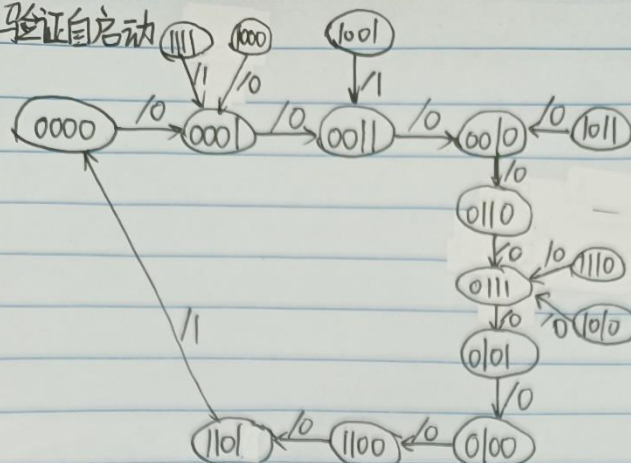 验证自启动 1111 1000 1001
/1 /0 /1
0000 /0 0001 /0 0011 /0 0010 /0 1011
/0
0110
/0 /0 1110
0111
/0 /0 1010
0101
/1 /0
1101 /0 1100 /0 0100